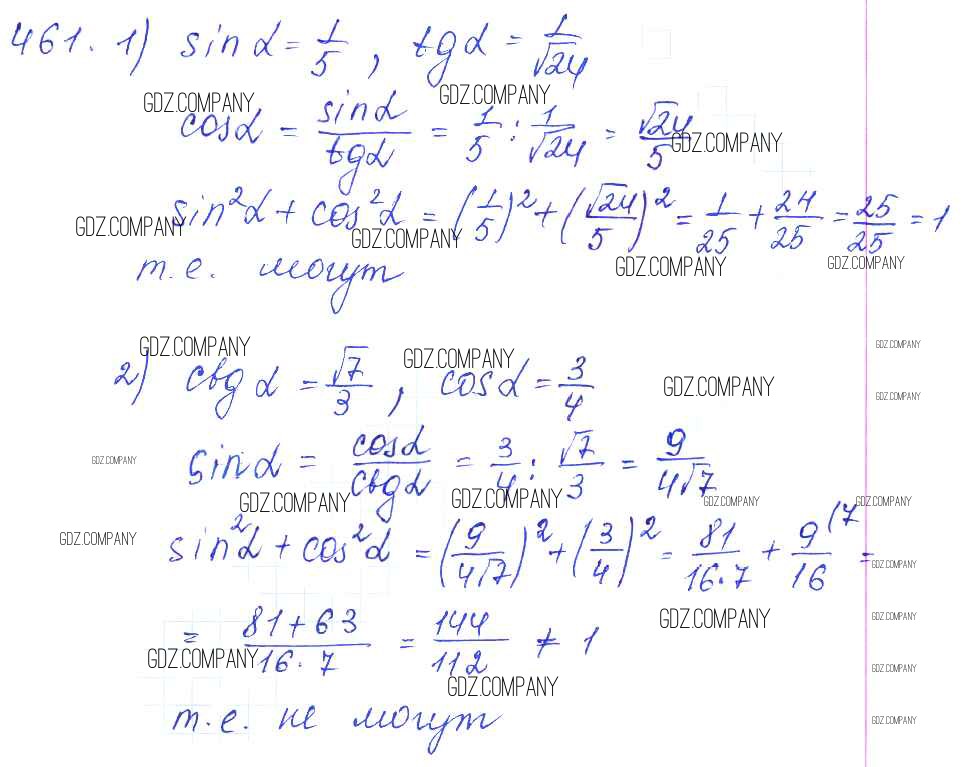 461. 1) sin α = 1/5, tg α = 1/√24
GDZ.COMPANY GDZ.COMPANY
cos α = sin α / tg α = 1/5 : 1/√24 = √24/5
GDZ.COMPANY
sin²α + cos²α = (1/5)² + (√24/5)² = 1/25 + 24/25 = 25/25 = 1
GDZ.COMPANY GDZ.COMPANY
т.е. могут
GDZ.COMPANY GDZ.COMPANY
GDZ.COMPANY GDZ.COMPANY GDZ.COMPANY
2) ctg α = √7/3, cos α = 3/4
GDZ.COMPANY GDZ.COMPANY
sin α = cos α / ctg α = 3/4 : √7/3 = 9/4√7
GDZ.COMPANY
GDZ.COMPANY GDZ.COMPANY GDZ.COMPANY GDZ.COMPANY
sin²α + cos²α = (9/4√7)² + (3/4)² = 81/16·7 + 9/16 (7 =
GDZ.COMPANY GDZ.COMPANY
= 81+63/16·7 = 144/112 ≠ 1
GDZ.COMPANY GDZ.COMPANY
GDZ.COMPANY GDZ.COMPANY
GDZ.COMPANY
т.е. не могут
GDZ.COMPANY